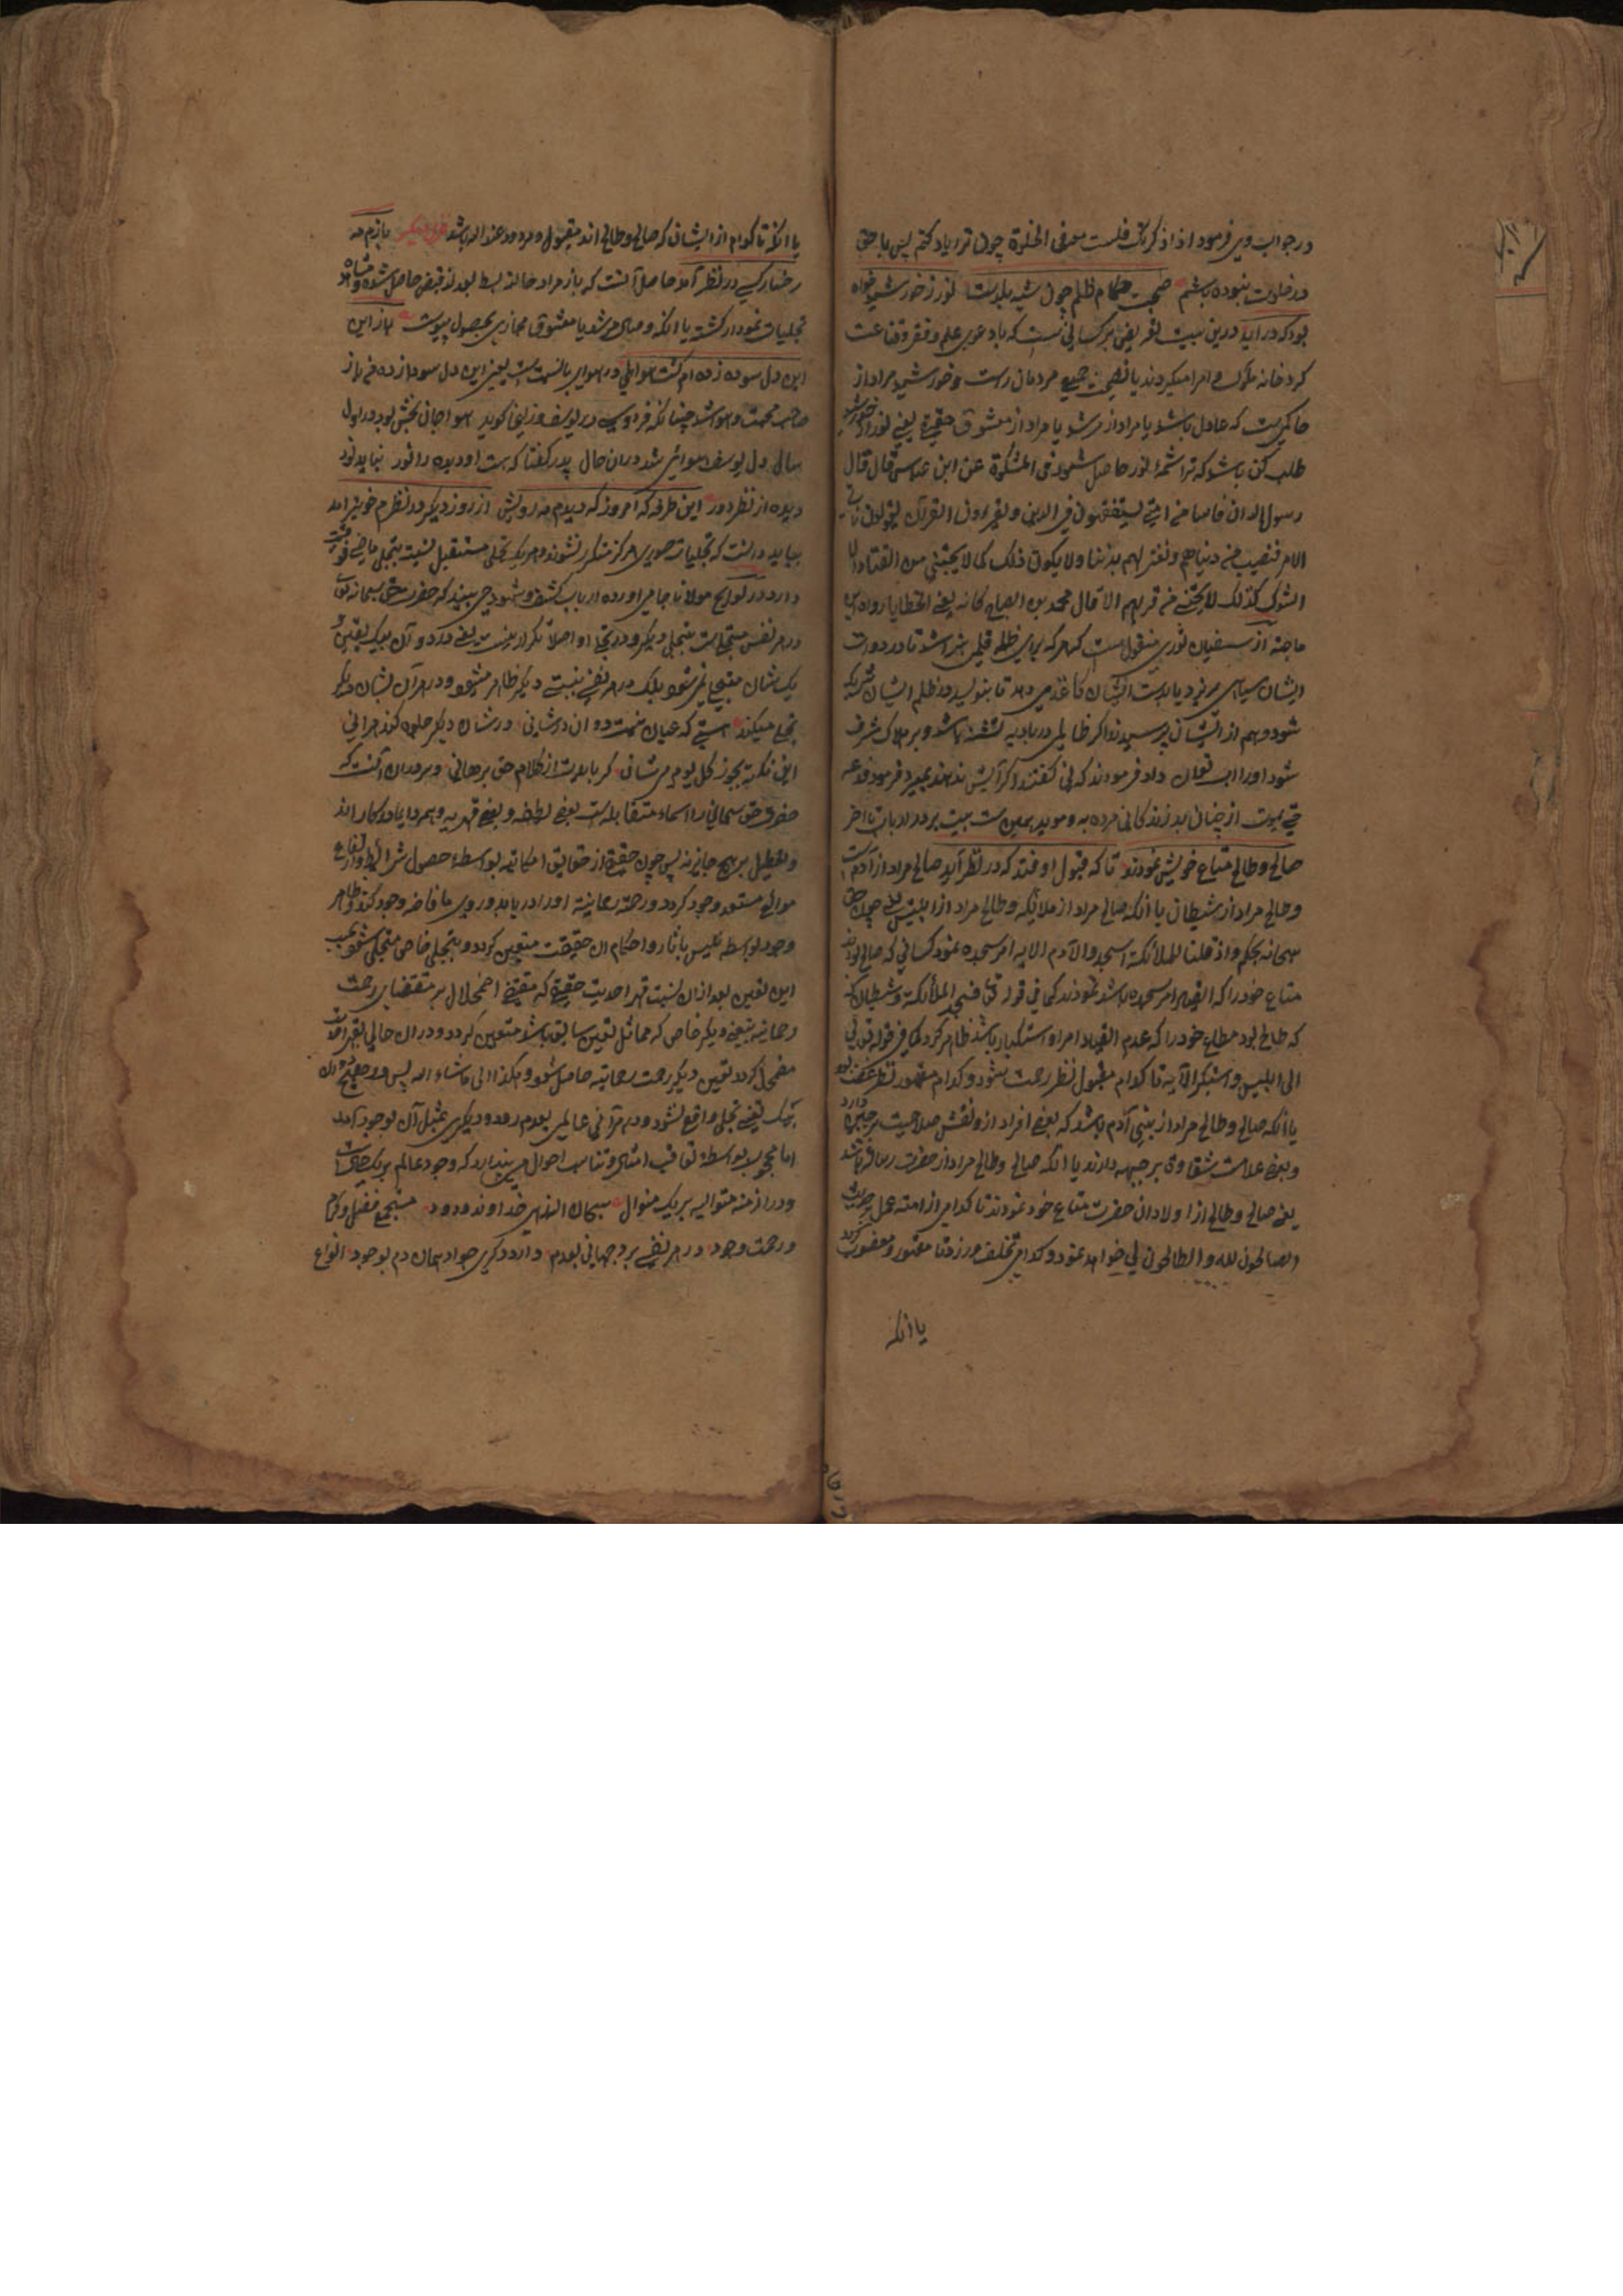 در جواب وی فرمود اذا ذکرتک فلست معی فی الخلوة چون ترا یاد کنم پس با حق
در خلوت نبوده باشم صحبت حکام ظلم چون شب یلداست نور ز خورشید خواه
بود که در آید درین بیت تعریض بر کسانی ست که با دعوی علم و فقر و قناعت
کرد خانه ملوک و امرا میکردند یا جمیع مردمان راست و خورشید مراد از
حاکمی ست که عادل باشد یا مراد از مرشد یا مراد از معشوق حقیقی یعنی نور از خورشید
طلب کن باشد که ترا شمه نور حاصل شود فی المشکوة عن ابن عباس قال قال
رسول الله ان اناسا من امتی یستفقهون فی الدین و یقرءون القرآن یقولون ناتی
الامرا فنصیب من دنیاهم و نعتزلهم بدیننا ولا یکون ذلک کما لا یجتنی من القتاد الا
الشوک کذلک لا یجتنی من قربهم الا قال محمد بن الصباح کانه یعنی الخطایا رواه ابن
ماجة از سفیان ثوری منقول ست که هر که برای ظلمه قلمی بتراشد تا در دوات
ایشان سیاهی بریزد یا بدست ایشان کاغذی دهد تا بنویسد در ظلم ایشان شریک
شود و هم از ایشان پرسیدند اگر ظالمی در بادیه تشنه باشد و بر هلاک مشرف
شود او را آب توان داد فرمودند که نی گفتند اگر آبش ندهند بمیرد فرمود دعه
حتی یموت از چنان بد زندگانی مرده به و موید همین ست بیت بر در ارباب تا آخر
صالح و طالح متاع خویش نمودند تا که قبول افتد که در نظر آید صالح مراد از آدم ست
و طالح مراد از شیطان یا آنکه صالح مراد از ملایکه و طالح مراد از ابلیس یعنی چون حق
سبحانه بحکم و اذ قلنا للملائکة اسجدوا لآدم الایه امر سجده نمود کسانی که صالح بودند
متاع خود را که انقیاد امر سجده باشد نمودند کما فی قوله تعالی فسجد الملائکة و شیطان
که طالح بود متاع خود را که عدم انقیاد امر او استکبار باشد ظاهر کرد کما فی قوله تعالی
الی ابلیس و استکبر الآیه تا کدام مقبول نظر رحمت شود و کدام مقهور نظر غضب بود
یا آنکه صالح و طالح مراد از بنی آدم باشد که بعضی افراد ازو نقش صلاحیت بر جبین دارد
و بعضی علامت شقاوت بر جبهه دارند یا آنکه صالح و طالح مراد از حضرت رسالت باشد
یعنی صالح و طالح از اولاد آن حضرت متاع خود نمودند تا کدامی از امت عمل بر حدیث
الصالحون لله و الطالحون لی خواهد نمود و کدامی تخلف ورزد تا مقهور و مغضوب گردد
یا آنکه
یا آنکه تا کدام از ایشان که صالح و طالح اند مقبول و مردود عند الله باشد غزل دیگر بازم مه
رخسار کسی در نظر آمد حاصل آنست که باز مراد حالت بسط بعد از قبض حاصل شده و مشاهده
تجلیات نمودار گشته یا آنکه وصال مرشد یا معشوق مجازی بحصول پیوست باز این
این دل سودا زده ام گشت هوائی در هوای بالنسبت ست یعنی این دل سودا زده من باز
صاحب محبت و هوا شد چنانکه فردوسی در یوسف و زلیخا گوید هوا جان بخش بود در اول
سال دل یوسف هوائی شد در آن حال پدر گفتا که هست او دیده را نور نباید بود
دیده از نظر دور این طرفه که امروز که دیدم مه رویش از روز دیگر در نظرم خوبتر آمد
بباید دانست که تجلیات صوری هرگز متکرر نشوند و هر یک تجلی مستقبل نسبت بتجلی ماضی فوقیت
دارد در لوایح مولانا جامی آورده ارباب کشف و شهود می بینند که حضرت حق سبحانه تعالی
در هر نفس متجلی ست بتجلی دیگر و در تجلی او اصلا تکرار نیست یعنی در دو آن بیک تعین و
یک شان متجلی نمی شود بلکه در هر نفسی بتعینی دیگر ظاهر میشود و در هر آن بشان دیگر
تجلی میکند هستی که عیان نیست دو آن در شانی در شان دیگر جلوه کند هر آنی
این نکته بجو ز کل یوم هو فی شان گر بایدت از کلام حق برهانی و سر در آن آنست که
حضرت حق سبحانی را اسماء متقابله ست بعضی لطفی و بعضی قهریه و همه دایما در کار اند
و تعطیل بر هیچ جایز نه پس چون حقیقتی از حقایق امکانیه بواسطه حصول شرایط و ارتفاع
موانع مستعد وجود گردد رحمت رحمانیه او را دریابد و بر وی افاضه وجود کند و ظاهر
وجود بواسطه تلبس بآثار و احکام آن حقیقت متعین گردد و بتجلی خاص متجلی شود بحسب
این تعین بعد از آن نسبت قهر احدیت حقیقی که مقتضی اضمحلال بر مقتضای رحمت
رحمانیه بتعینی دیگر خاص که مماثل تعین سابق باشد متعین گردد و در آن حالی بقهر احدیت
مضمحل گردد تعین دیگر رحمت رحمانیه حاصل شود و هکذا الی ما شاء الله پس در هیچ دو آن
بیک تعینی تجلی واقع نشود و در هر آنی عالمی بعدم رود و دیگری بمثل آن بوجود آید
اما محجوب بواسطه تعاقب امثال و تناسب احوال می پندارد که وجود عالم بر یک حال ست
و در ازمنه متوالیه بر یک منوال سبحان الله زهی خداوند ودود مستجمع فضل و کرم
و رحمت و جود در هر نفسی برد جهانی بعدم و آرد دگری چو او همان دم بوجود انواع